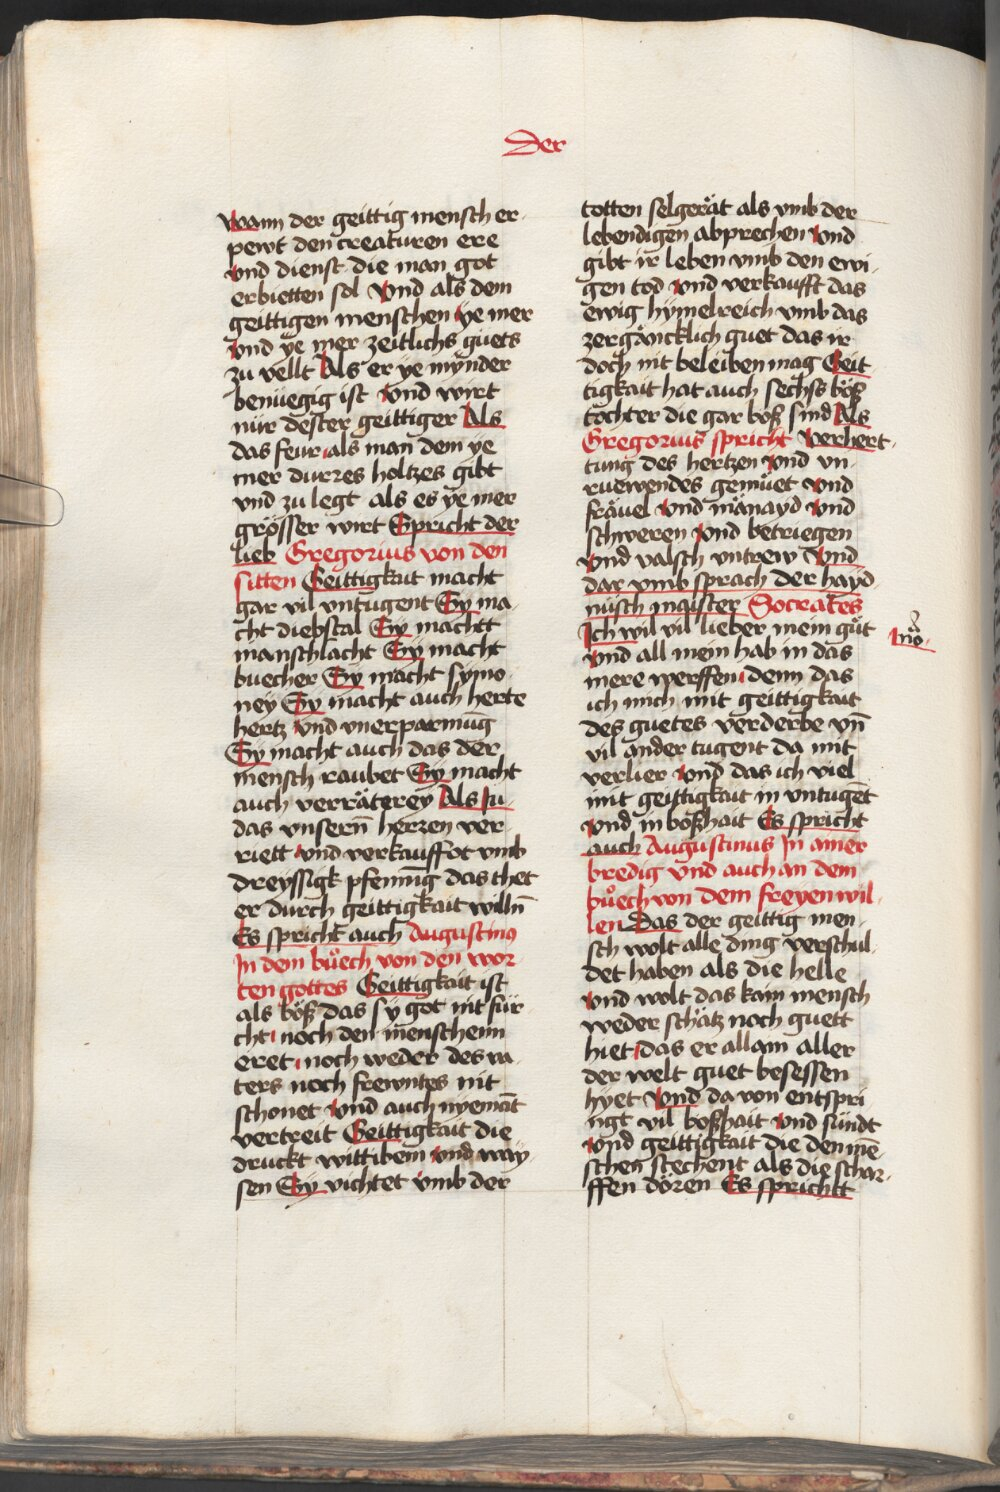 Der
wann der geittig mensch er-
pewt den creaturen ere
vnd dienst die man got
erbietten sol Vnd als dem
geittigen menschen ye mer
vnd ye mer zeitlichs guets
zu vellt Als er ye mynder
benüegig ist vnd wirt
nür dester geittiger Als
das feur als man dem ye
mer durres holtzes gibt
vnd zu legt als es ye mer
grösser wirt Spricht der
lieb Gregorius von den
sitten Geittigkait macht
gar vil vntugent Sy ma-
cht diepstal Sy machtt
manschlacht Sy macht
buecher Sy macht symo-
ney Sy macht auch herte
hertz vnd vnerparmūg
Sy macht auch das der
mensch raubet Sy macht
auch verräterey Als Ju-
das vnsern̄ herzen ver-
riett vnd verkauffot vmb
dreyssigk pfennīg das thet
er durch geittigkait willn̄
Es spricht auch Augustinus
In dem bůech von den wor-
ten gottes Geittigkait ist
als böß das sy got nit für-
cht noch den menschenn
eret noch weder des va-
ters noch frewntes nit
schonet vnd auch nyemāt
vertreit Geittigkait die
druckt wittiben vnd way-
sen Sy vichtet vmb der
totten selgerät als vmb der
lebendigen absprechen vnd
gibt ir leben vmb den ewi-
gen tod vnd verkaufft das
ewig hymelreich vmb das
zergäncklich guet das ir
doch nit beleiben mag Geit-
tigkait hat auch sechss böß
töchter die gar böß sind Als
Gregorius spricht verhert-
tung des hertzen vnd vn-
ruewendes gemüet vnd
fräuel vnd mänayd vnd
schweren vnd betriegen
vnd valsch vntrew Vnd
dar vmb sprach der hayd-
nisch maister Socrates
Ich wil vil lieber mein gůt
vnd all mein hab in das
mere werffen denn das
ich mich mit geittigkait
des guetes verderbe vn̄
vil ander tugent da mit
verlier vnd das ich viel
mit geittigkait in vntugēt
vnd in bößhait Es spricht
auch Augustinus In ainer
bredig vnd auch an dem
bůech von dem freyen wil-
len Das der geittig men-
sch wolt alle ding verschul-
det haben als die helle
vnd wolt das kain mensch
weder schätz noch guett
hiet das er allain aller
der welt guet besessen
hyet vnd da von entspri-
ngt vil boßhait vnd sündt
vnd geittigkait die den mē-
schen stechent als die schar-
ffen dören Es sprichtt